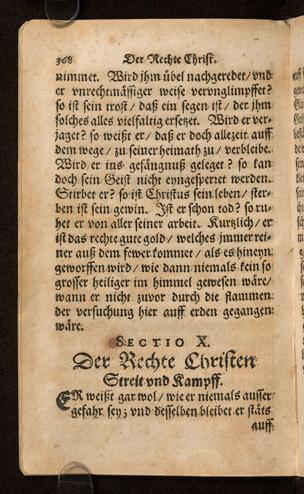 368 Der Rechte Christ.
nimmet. Wird jhm übel nachgeredet/ vnd
er vnrechtmässiger weise vervnglimpffet?
so ist sein trost/ daß ein segen ist/ der jhm
solches alles vielfaltig ersetzet. Wird er ver-
jaget? so weißt er/ daß er doch allezeit auff
dem wege/ zu seiner heimath zu/ verbleibe.
Wird er ins gefängnuß geleget? so kan
doch sein Geist nicht eyngesperret werden.
Stirbet er? so ist Christus sein leben/ ster-
ben ist sein gewin. Ist er schon tod? so ru-
het er von aller seiner arbeit. Kurtzlich/ er
ist das rechte gute gold/ welches jmmer rei-
ner auß dem fewer kommet/ als es hineyn
geworffen wird/ wie dann niemals kein so
grosser heiliger im himmel gewesen wäre/
wann er nicht zuvor durch die flammen
der versuchung hier auff erden gegangen
wäre.
SECTIO X.
Der Rechte Christen
Streit vnd Kampff.
ER weißt gar wol/ wie er niemals ausser
gefahr sey; vnd desselben bleibet er stäts
auff